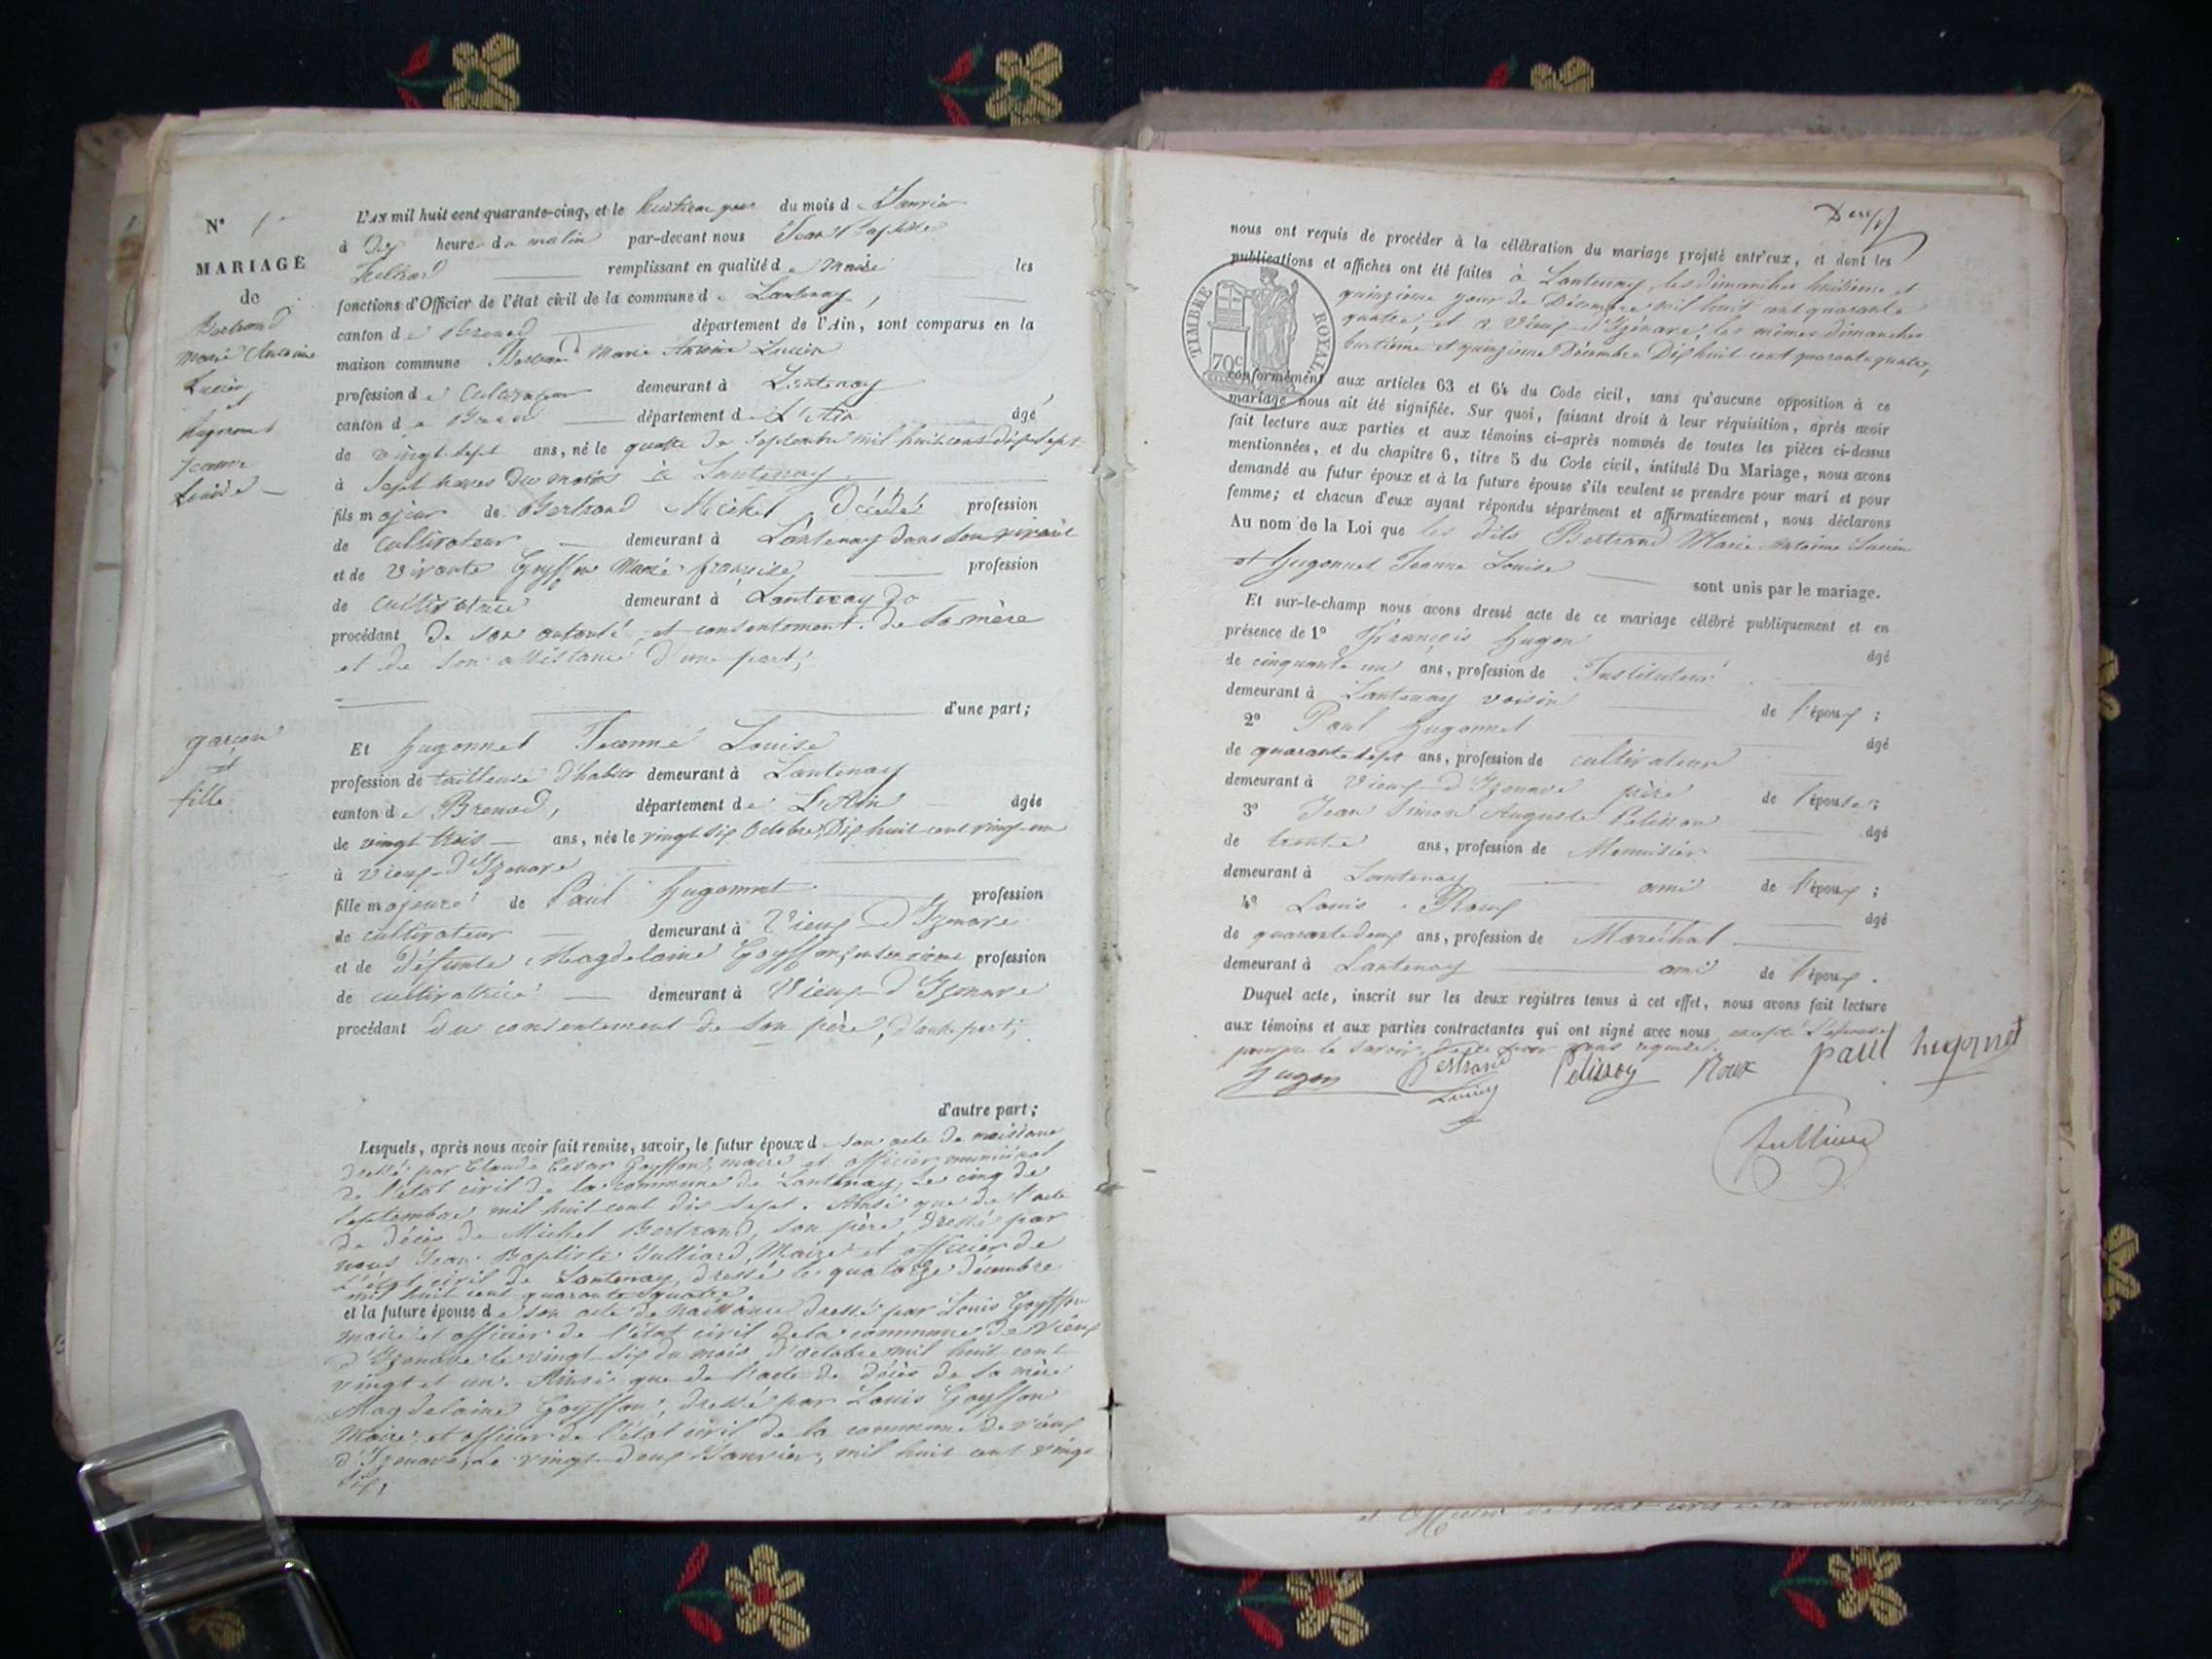 N° 1er
MARIAGE
de
Bertrand
Marie Antoine
Lucien
et
hugonnet
Jeanne
Louise
garçon
et
fille
L'AN mil huit cent quarante-cinq, et le huitième jour du mois de Janvier
à Dix heures du matin par-devant nous Jean Baptiste
Julliard remplissant en qualité de Maire les
fonctions d'Officier de l'état civil de la commune de Lantenay,
canton de Brenod département de l'Ain, sont comparus en la
maison commune Bertrand Marie Antoine Lucien
profession de Cultivateur demeurant à Lantenay
canton de Brenod département de L'Ain âgé
de vingt-sept ans, né le quatre de Septembre mil huit cent dix sept
à Sept heures du matin à Lantenay
fils majeur de Bertrand Michel Décédé profession
de cultivateur demeurant à Lantenay dans son vivant
et de vivante Goyffon Marie françoise profession
de cultivatrice demeurant à Lantenay do
procédant de son autorité et consentement de sa mère
et de son assistance d'une part;
d'une part;
Et hugonnet Jeanne Louise
profession de tailleuse d'habits demeurant à Lantenay
canton de Brenod, département de L'Ain âgée
de vingt trois ans, née le vingt six Octobre, Dix huit cent vingt un
à vieux-d'Izenave
fille majeure de Paul hugonnet profession
de cultivateur demeurant à Vieux-d'Izenave
et de défunte Magdelaine Goyffon, profession
de cultivatrice demeurant à Vieux-d'Izenave
procédant du consentement de son père, d'autre part;
d'autre part;
Lesquels, après nous avoir fait remise, savoir, le futur époux de son acte de naissance
dressé par Claude Cesar Goyffon, maire et officier municipal
de l'état civil de la commune de Lantenay, le cinq de
Septembre mil huit cent dix sept. Ainsi que de l'acte
de décès de Michel Bertrand, son père, dressé par
nous Jean Baptiste Julliard, Maire et officier de
l'état civil de Lantenay, dressé le quatorze décembre
mil huit cent quarante quatre.
et la future épouse de son acte de naissance dressé par Louis Goyffon
maire et officier de l'état civil de la commune de Vieux
d'Izenave le vingt-six du mois d'octobre mil huit cent
vingt et un. Ainsi que de l'acte de décès de sa mère
Magdelaine Goyffon, dressé par Louis Goyffon
Maire et officier de l'état civil de la commune de vieux
d'Izenave, le vingt-deux Janvier, mil huit cent vingt
six,
Deux
nous ont requis de procéder à la célébration du mariage projeté entr'eux, et dont les
publications et affiches ont été faites à Lantenay, les dimanches huitième et
quinzième jour de Décembre mil huit cent quarante
quatre, et à Vieux-d'Izenave, les mêmes dimanches
huitième et quinzième Décembre Dix huit cent quarante quatre,
TIMBRE ROYAL
70c
conformément aux articles 63 et 64 du Code civil, sans qu'aucune opposition à ce
mariage nous ait été signifiée. Sur quoi, faisant droit à leur réquisition, après avoir
fait lecture aux parties et aux témoins ci-après nommés de toutes les pièces ci-dessus
mentionnées, et du chapitre 6, titre 5 du Code civil, intitulé Du Mariage, nous avons
demandé au futur époux et à la future épouse s'ils veulent se prendre pour mari et pour
femme; et chacun d'eux ayant répondu séparément et affirmativement, nous déclarons
Au nom de la Loi que les dits Bertrand Marie Antoine Lucien
et Hugonnet Jeanne Louise sont unis par le mariage.
Et sur-le-champ nous avons dressé acte de ce mariage célébré publiquement et en
présence de 1° François hugon âgé
de cinquante un ans, profession de Instituteur
demeurant à Lantenay voisin de l'époux;
2° Paul hugonnet âgé
de quarante sept ans, profession de cultivateur
demeurant à Vieux-d'Izenave père de l'épouse;
3° Jean Simon Auguste Pelisson âgé
de trente ans, profession de Menuisier
demeurant à Lantenay ami de l'époux;
4° Louis Roux âgé
de quarante deux ans, profession de Maréchal
demeurant à Lantenay ami de l'époux.
Duquel acte, inscrit sur les deux registres tenus à cet effet, nous avons fait lecture
aux témoins et aux parties contractantes qui ont signé avec nous excepté l'épouse
le savoir requise.
hugon Bertrand Pelisson Roux paul hugonnet
Lucien
Julliard
et Officier de l'état civil de la commune